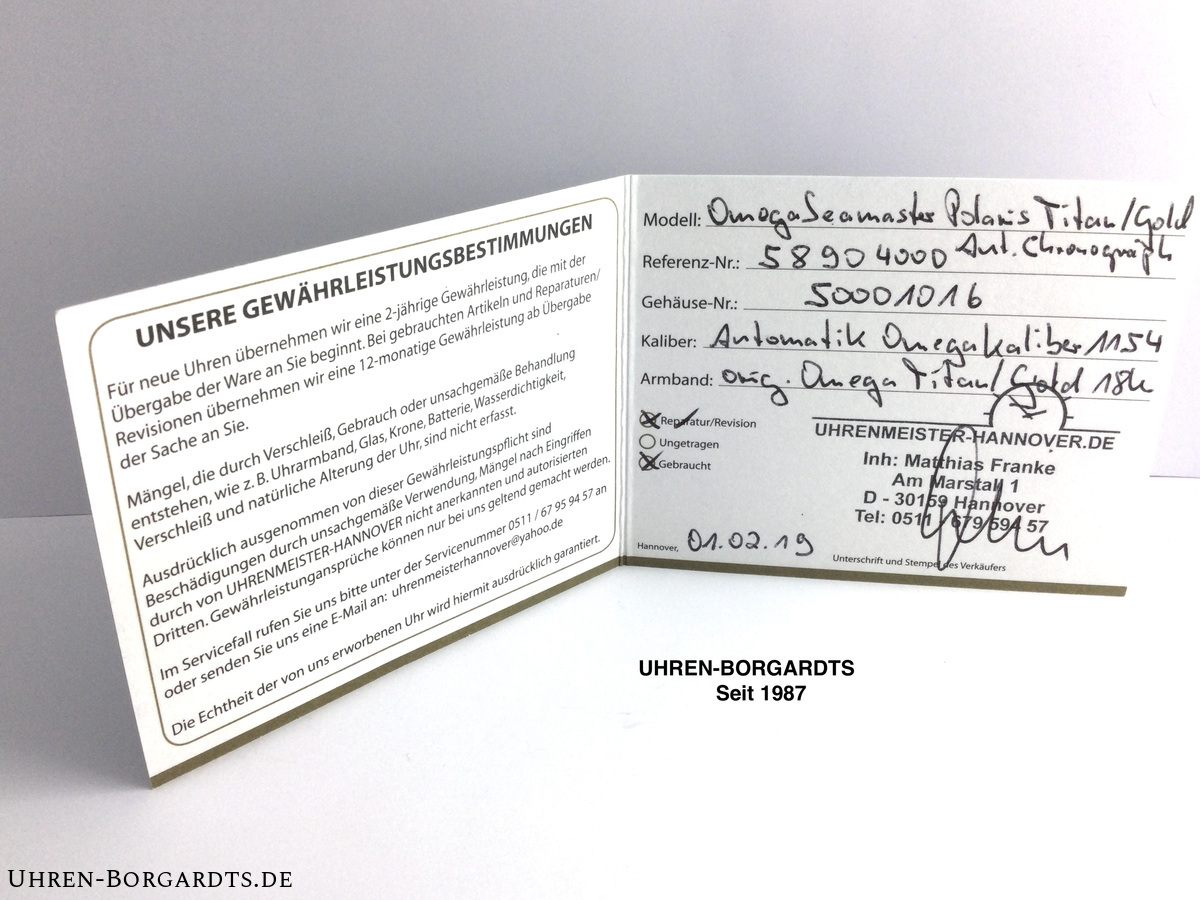 UNSERE GEWÄHRLEISTUNGSBESTIMMUNGEN
Für neue Uhren übernehmen wir eine 2-jährige Gewährleistung, die mit der
Übergabe der Ware an Sie beginnt. Bei gebrauchten Artikeln und Reparaturen/
Revisionen übernehmen wir eine 12-monatige Gewährleistung ab Übergabe
der Sache an Sie.
Mängel, die durch Verschleiß, Gebrauch oder unsachgemäße Behandlung
entstehen, wie z. B. Uhrarmband, Glas, Krone, Batterie, Wasserdichtigkeit,
Verschleiß und natürliche Alterung der Uhr, sind nicht erfasst.
Ausdrücklich ausgenommen von dieser Gewährleistungspflicht sind
Beschädigungen durch unsachgemäße Verwendung, Mängel nach Eingriffen
durch von UHRENMEISTER-HANNOVER nicht anerkannten und autorisierten
Dritten. Gewährleistungansprüche können nur bei uns geltend gemacht werden.
Im Servicefall rufen Sie uns bitte unter der Servicenummer 0511 / 67 95 94 57 an
oder senden Sie uns eine E-Mail an: uhrenmeisterhannover@yahoo.de
Die Echtheit der von uns erworbenen Uhr wird hiermit ausdrücklich garantiert.
Modell: Omega Seamaster Polaris Titan/Gold
Referenz-Nr.: 58904000 Aut. Chronograph
Gehäuse-Nr.: 50001016
Kaliber: Automatik Omegakaliber 1154
Armband: orig. Omega Titan/Gold 18k
Reparatur/Revision
Ungetragen
Gebraucht
UHRENMEISTER-HANNOVER.DE
Inh: Matthias Franke
Am Marstall 1
D - 30159 Hannover
Tel: 0511 / 679 594 57
Hannover, 01.02.19
Unterschrift und Stempel des Verkäufers
UHREN-BORGARDTS
Seit 1987
UHREN-BORGARDTS.DE